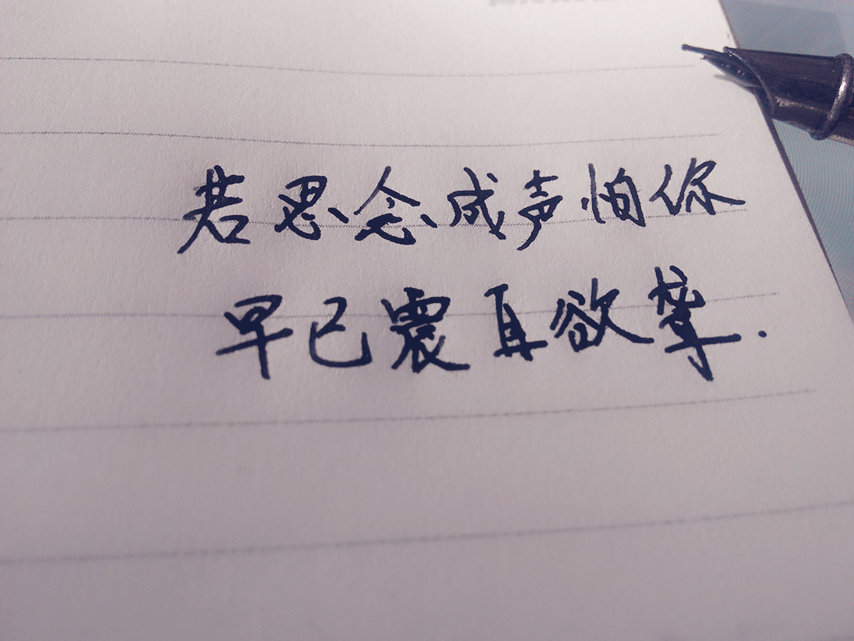 若思念成声怕你
早已震耳欲聋.